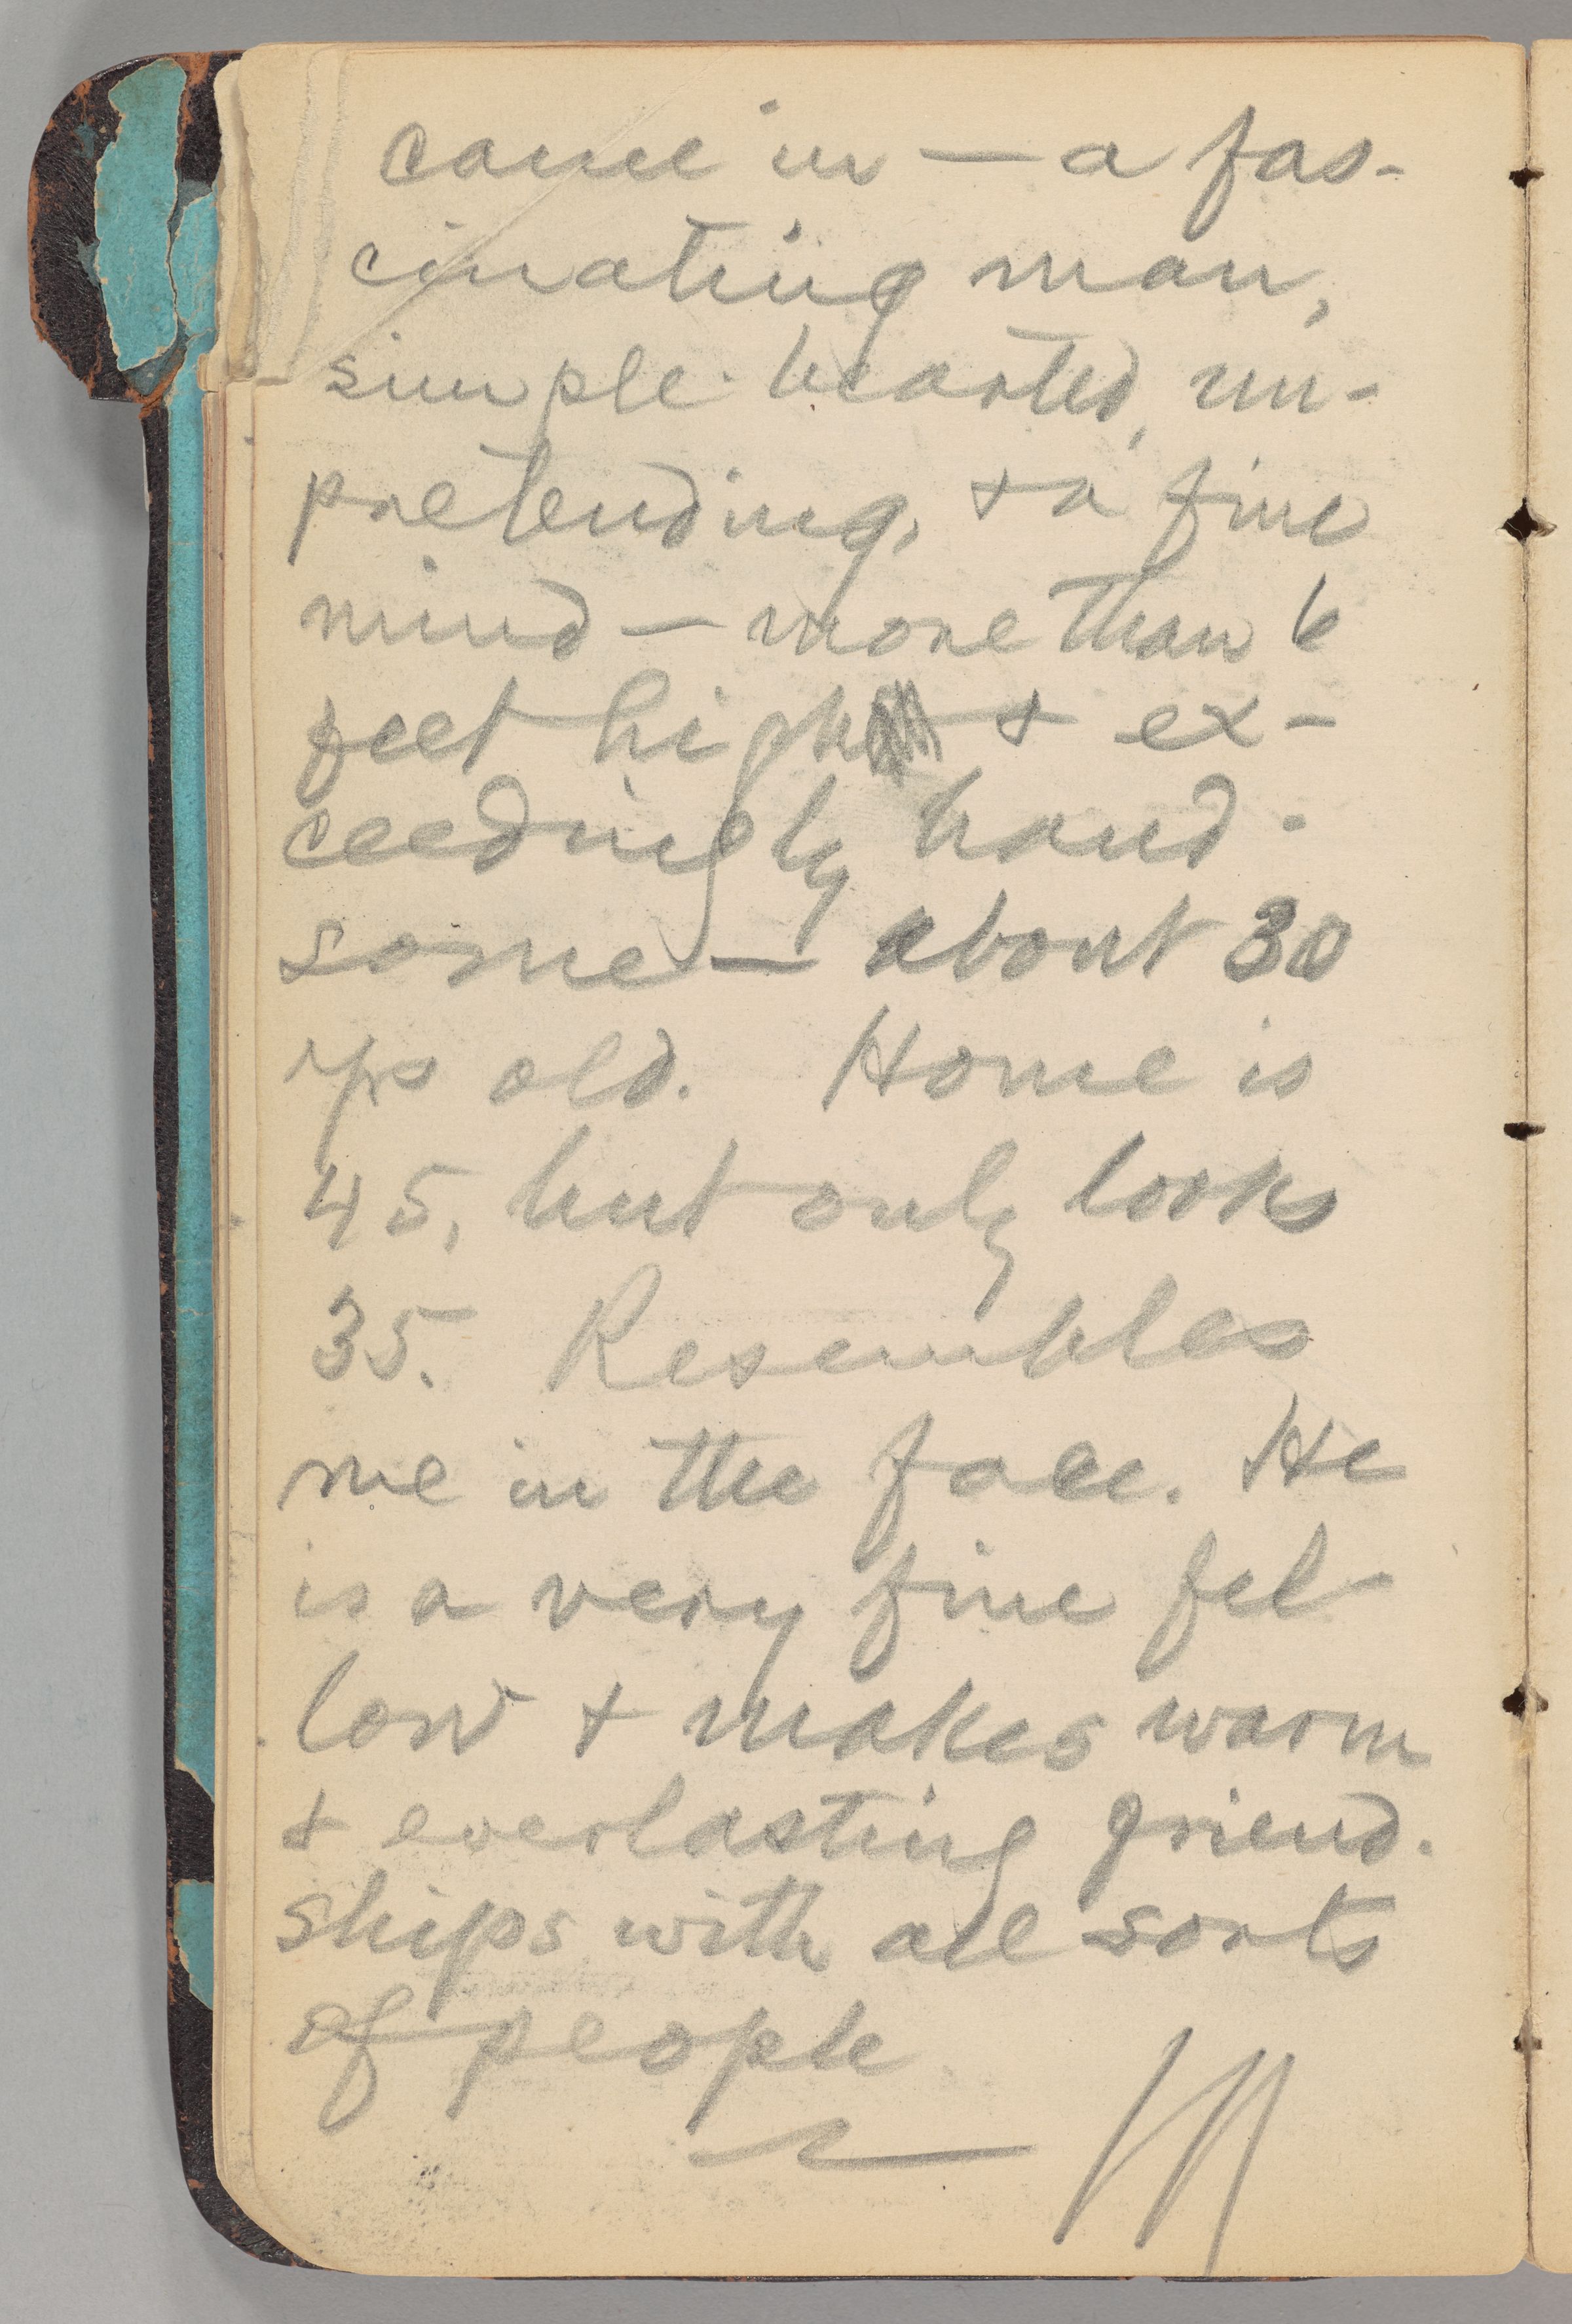 came in — a fas-
cinating man,
simple-hearted, un-
pretending, & a fine
mind — more than 6
feet high & ex-
ceedingly hand-
some — about 30
yrs old. Home is
45, but only looks
35. Resembles
me in the face. He
is a very fine fel-
low & makes warm
& everlasting friend-
ships with all sorts
of people